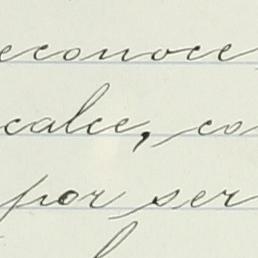 econoce
calce, co
por ser